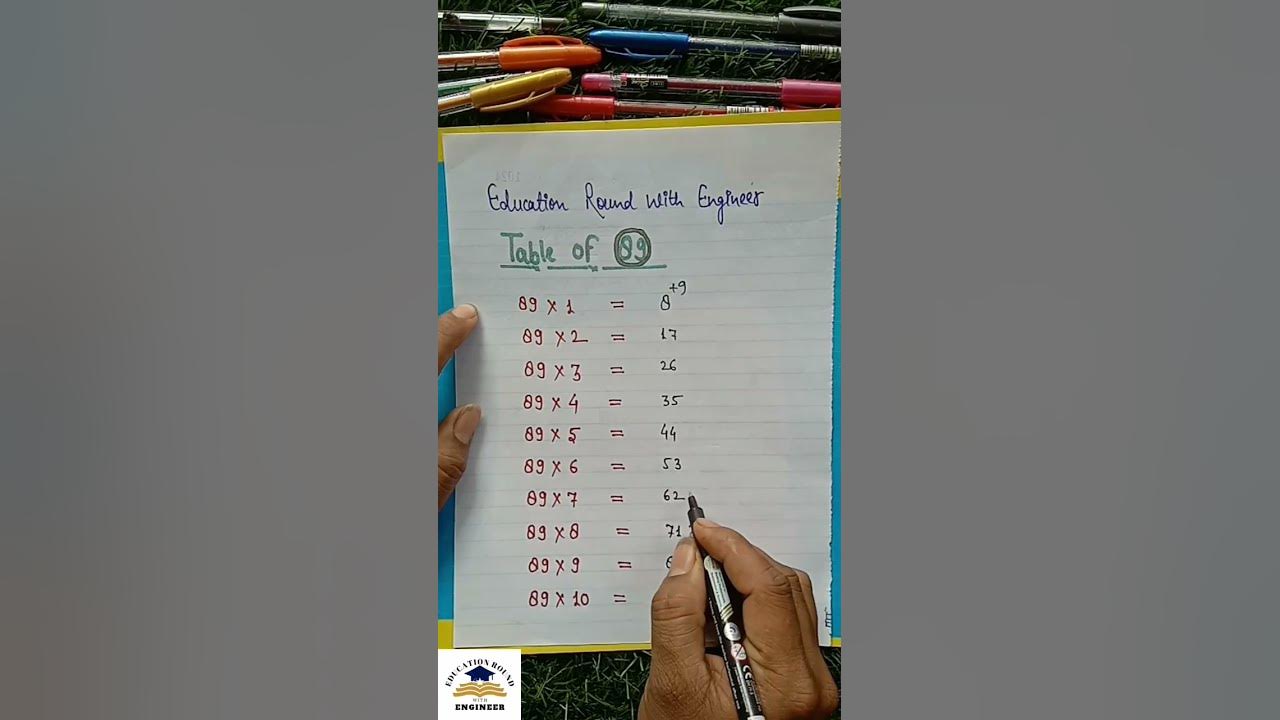 Education Round with Engineer
Table of 89
89 x 1 = 8 +9
89 x 2 = 17
89 x 3 = 26
89 x 4 = 35
89 x 5 = 44
89 x 6 = 53
89 x 7 = 62
89 x 8 = 71
89 x 9 =
89 x 10 =
EDUCATION ROUND
WITH
ENGINEER